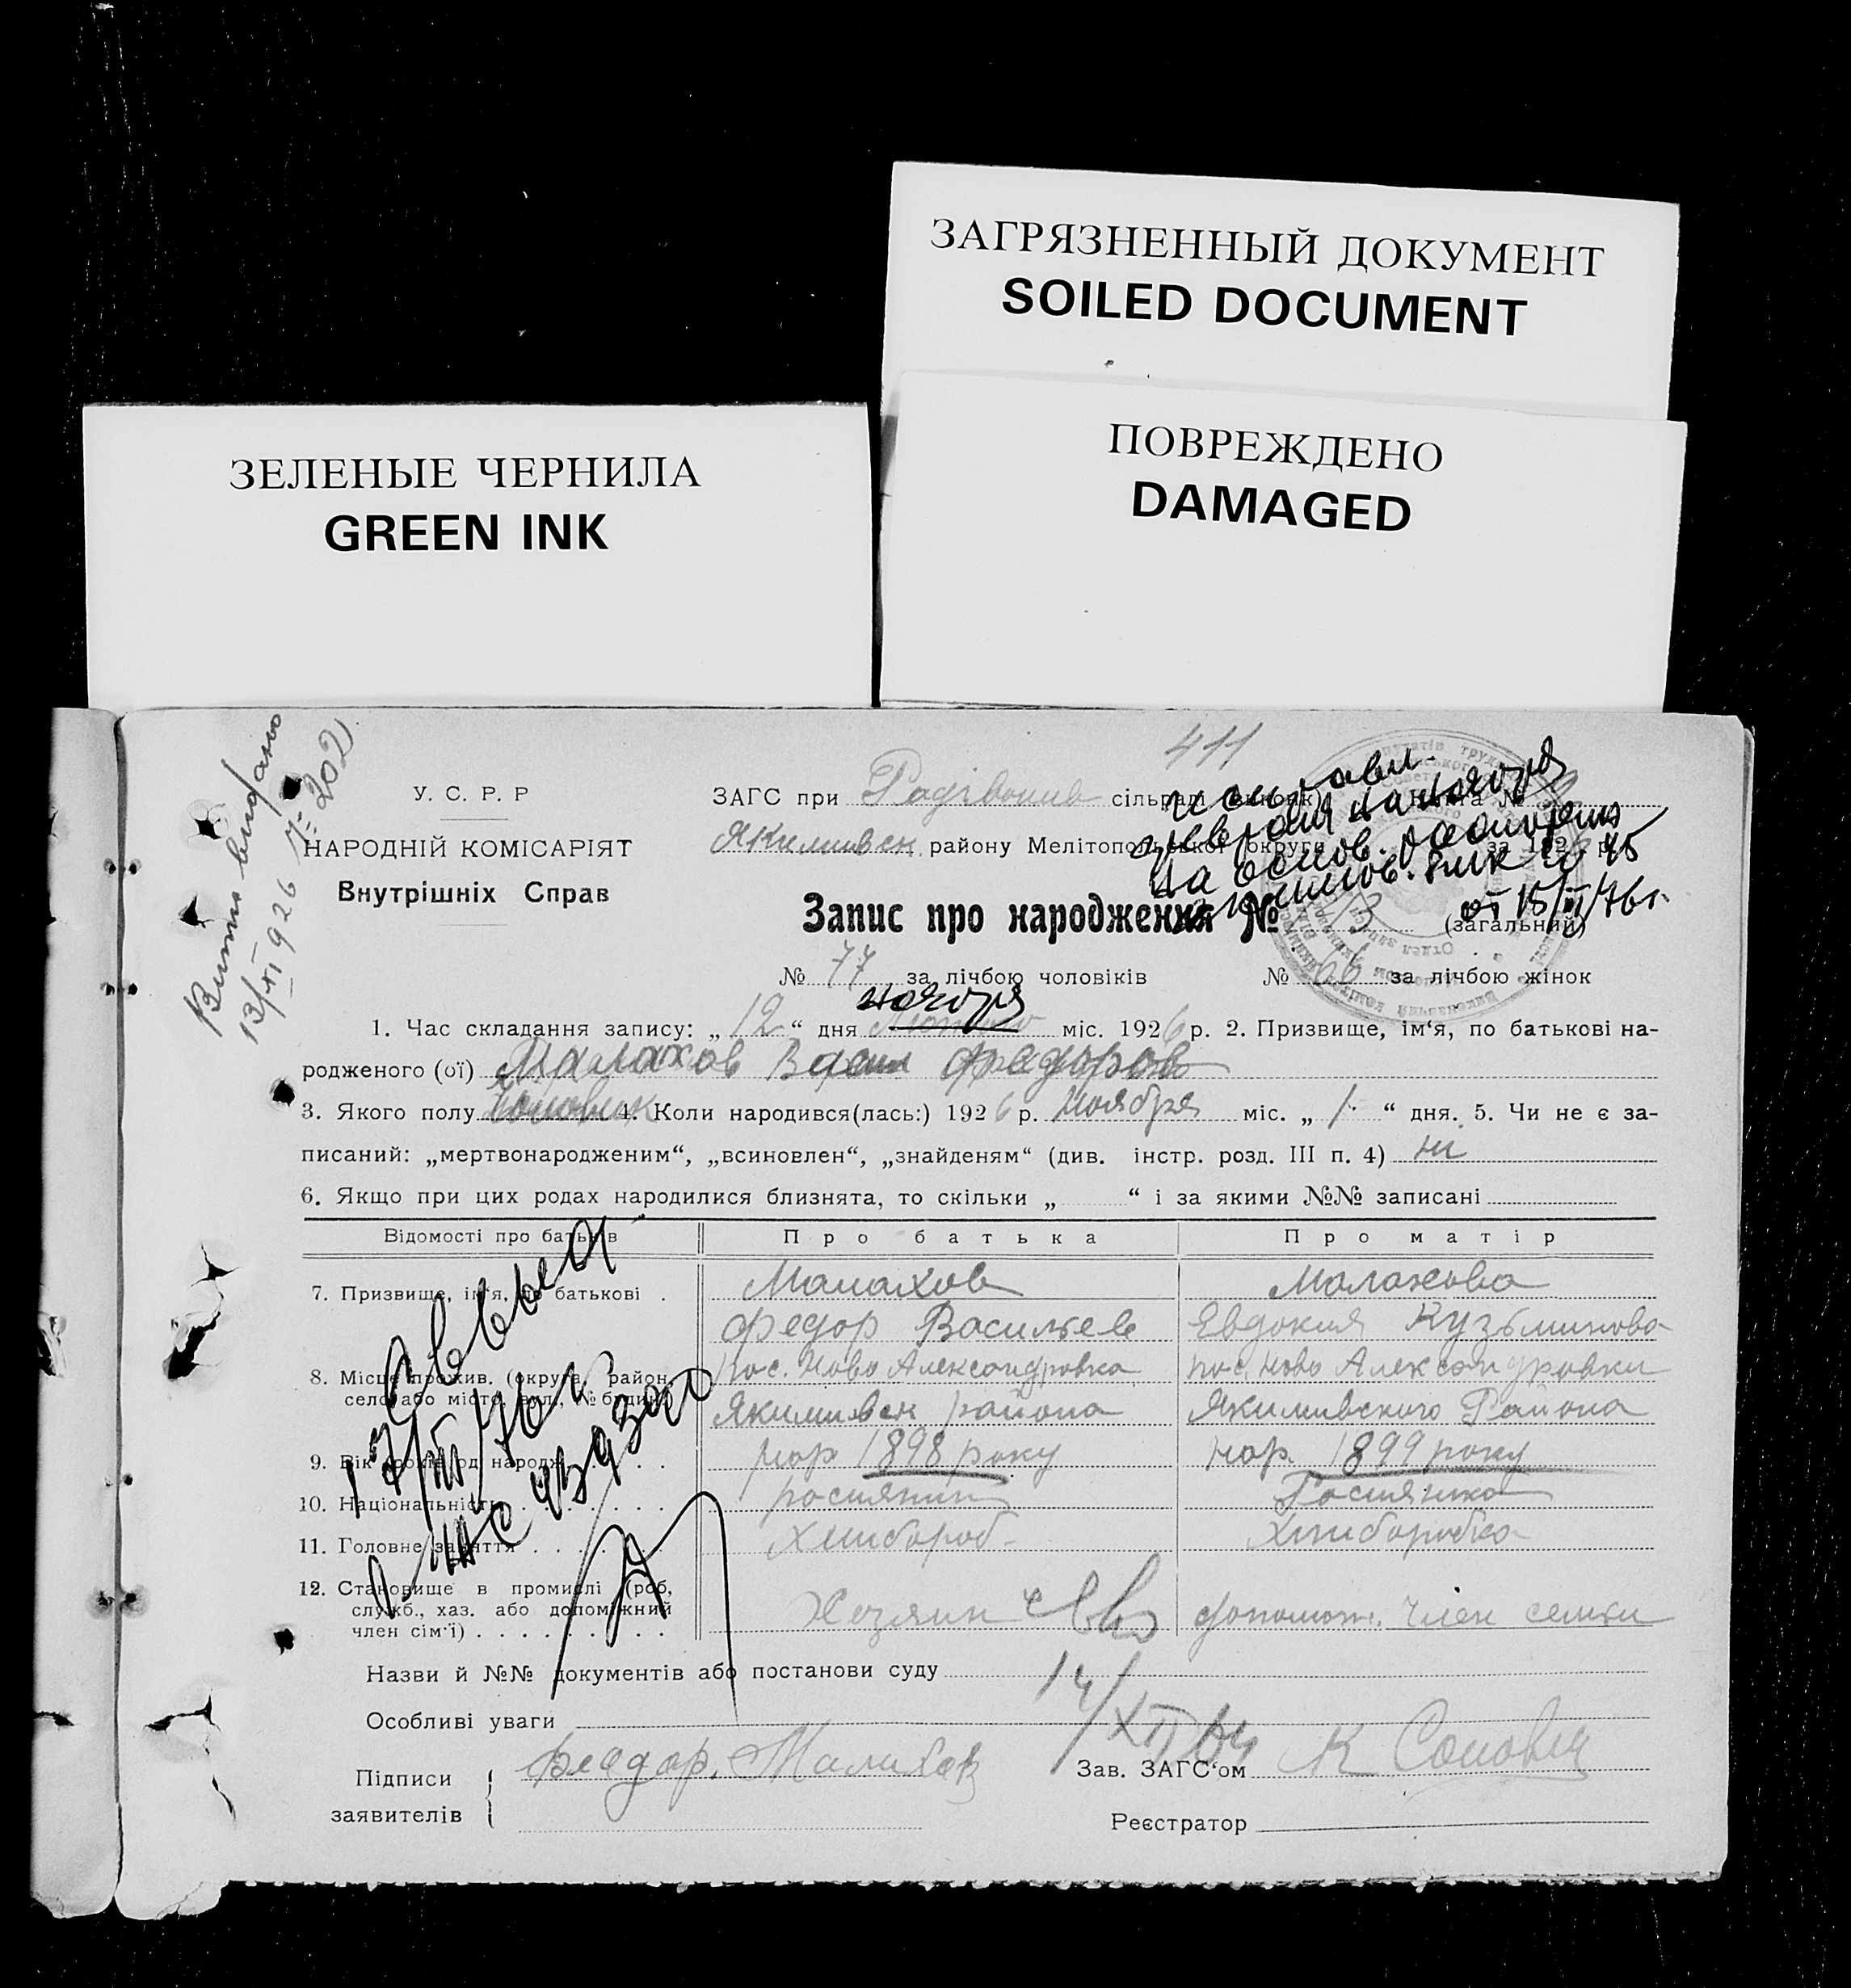 ЗАГРЯЗНЕННЫЙ ДОКУМЕНТ
SOILED DOCUMENT
ЗЕЛЕНЫЕ ЧЕРНИЛА
GREEN INK
ПОВРЕЖДЕНО
DAMAGED
411
У. С. Р. Р
НАРОДНІЙ КОМІСАРІЯТ
Внутрішніх Справ
13/XI 926 № 202
ЗАГС при Радівонив сільраді
Якимивск району Мелітопольської округи за 1926 р.
от 15/III/76 г.
Запис про народження № (загальний)
№ 77 за лічбою чоловіків № 66 за лічбою жінок
ноября
1. Час складання запису: „12“ дня міс. 1926 р. 2. Призвище, ім‘я, по батькові на-
родженого (ої) Малахов Васил Федорово
3. Якого полу Чоловик 4. Коли народився(лась:) 1926 р. Ноября міс. „1“ дня. 5. Чи не є за-
писаний: „мертвонародженим“, „всиновлен“, „знайденям“ (див. інстр. розд. III п. 4) ни
6. Якщо при цих родах народилися близнята, то скільки „ “ і за якими №№ записані
Відомості про батьків Про батька Про матір
7. Призвище, ім‘я, по батькові . Малахов Малахова
Федор Васильев Евдокия Кузьминова
8. Місце прожив. (округа, район, пос. Ново Александровка пос. Ново Александровки
село або місто, вул., № будин.) Якимивск района Якимивского Района
9. Вік (років од народж. нар 1898 року нар. 1899 року
10. Національність росиянин Росиянка
11. Головне заняття Хлибороб Хлиборобка
12. Становище в промислі (роб, Хозяин допомож. член семьи
служб., хаз. або допоміжний
член сім‘ї)
Назви й №№ документів або постанови суду
14/XII 64
Особливі уваги
Підписи Феодор. Малахов Зав. ЗАГС‘ом К
заявителів Реєстратор